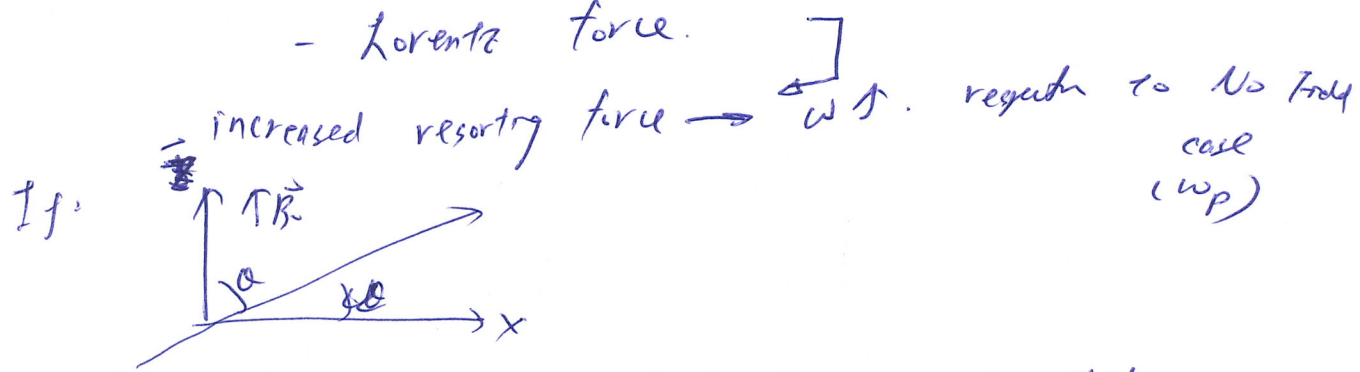 - Lorentz force.
increased resortng force → ω ↑. to No Field
case
(ωp)
If: ↑B⃗₀
θ
θ
x